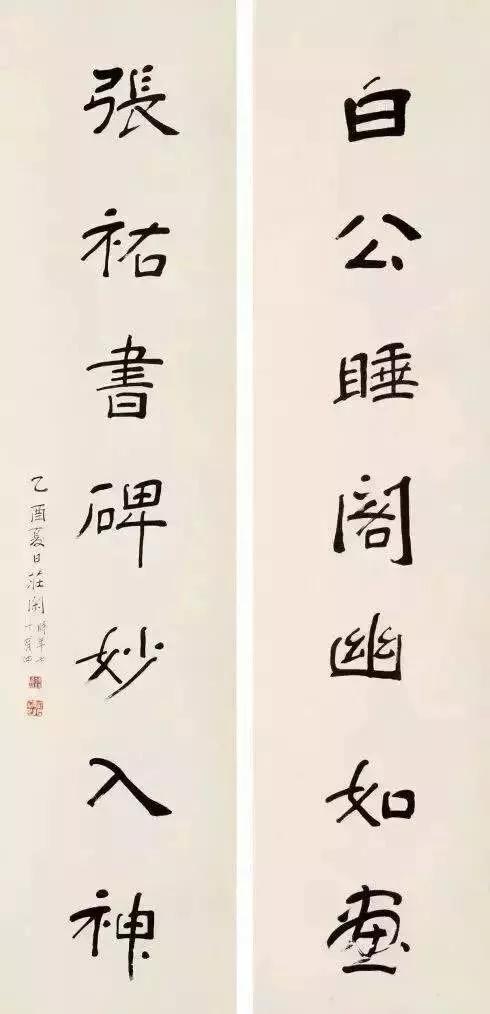 白公睡閣幽如畫
張祐書碑妙入神
乙酉夏日莊閑時年七十有四